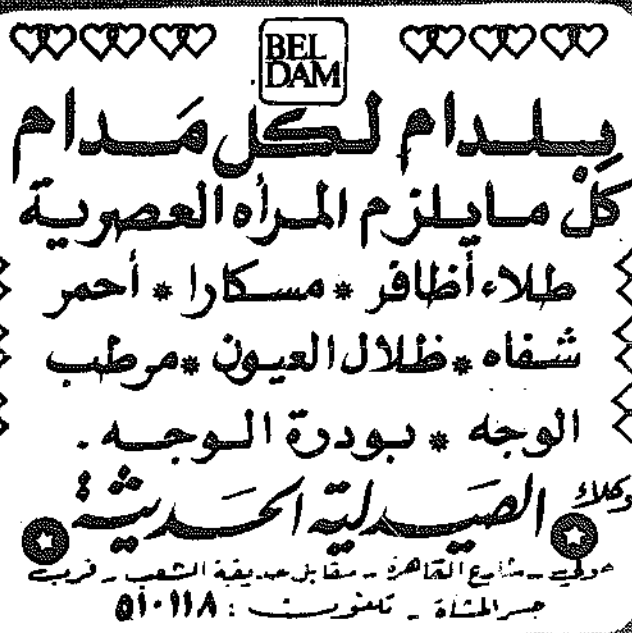 BEL
DAM
بلدام لكل مَدام
كلْ مايلزم المرأه العصرية
طلاء أظافر * مسكارا * أحمر
شفاه * ظلال العيون * مرطب
الوجه * بودرة الوجه .
وكلاء الصيدلية الحَديثة
حولي - شارع القاهرة - مقابل حديقة الشعب - قرب
جسر المشاة - تلفون : ٥١٠١١٨